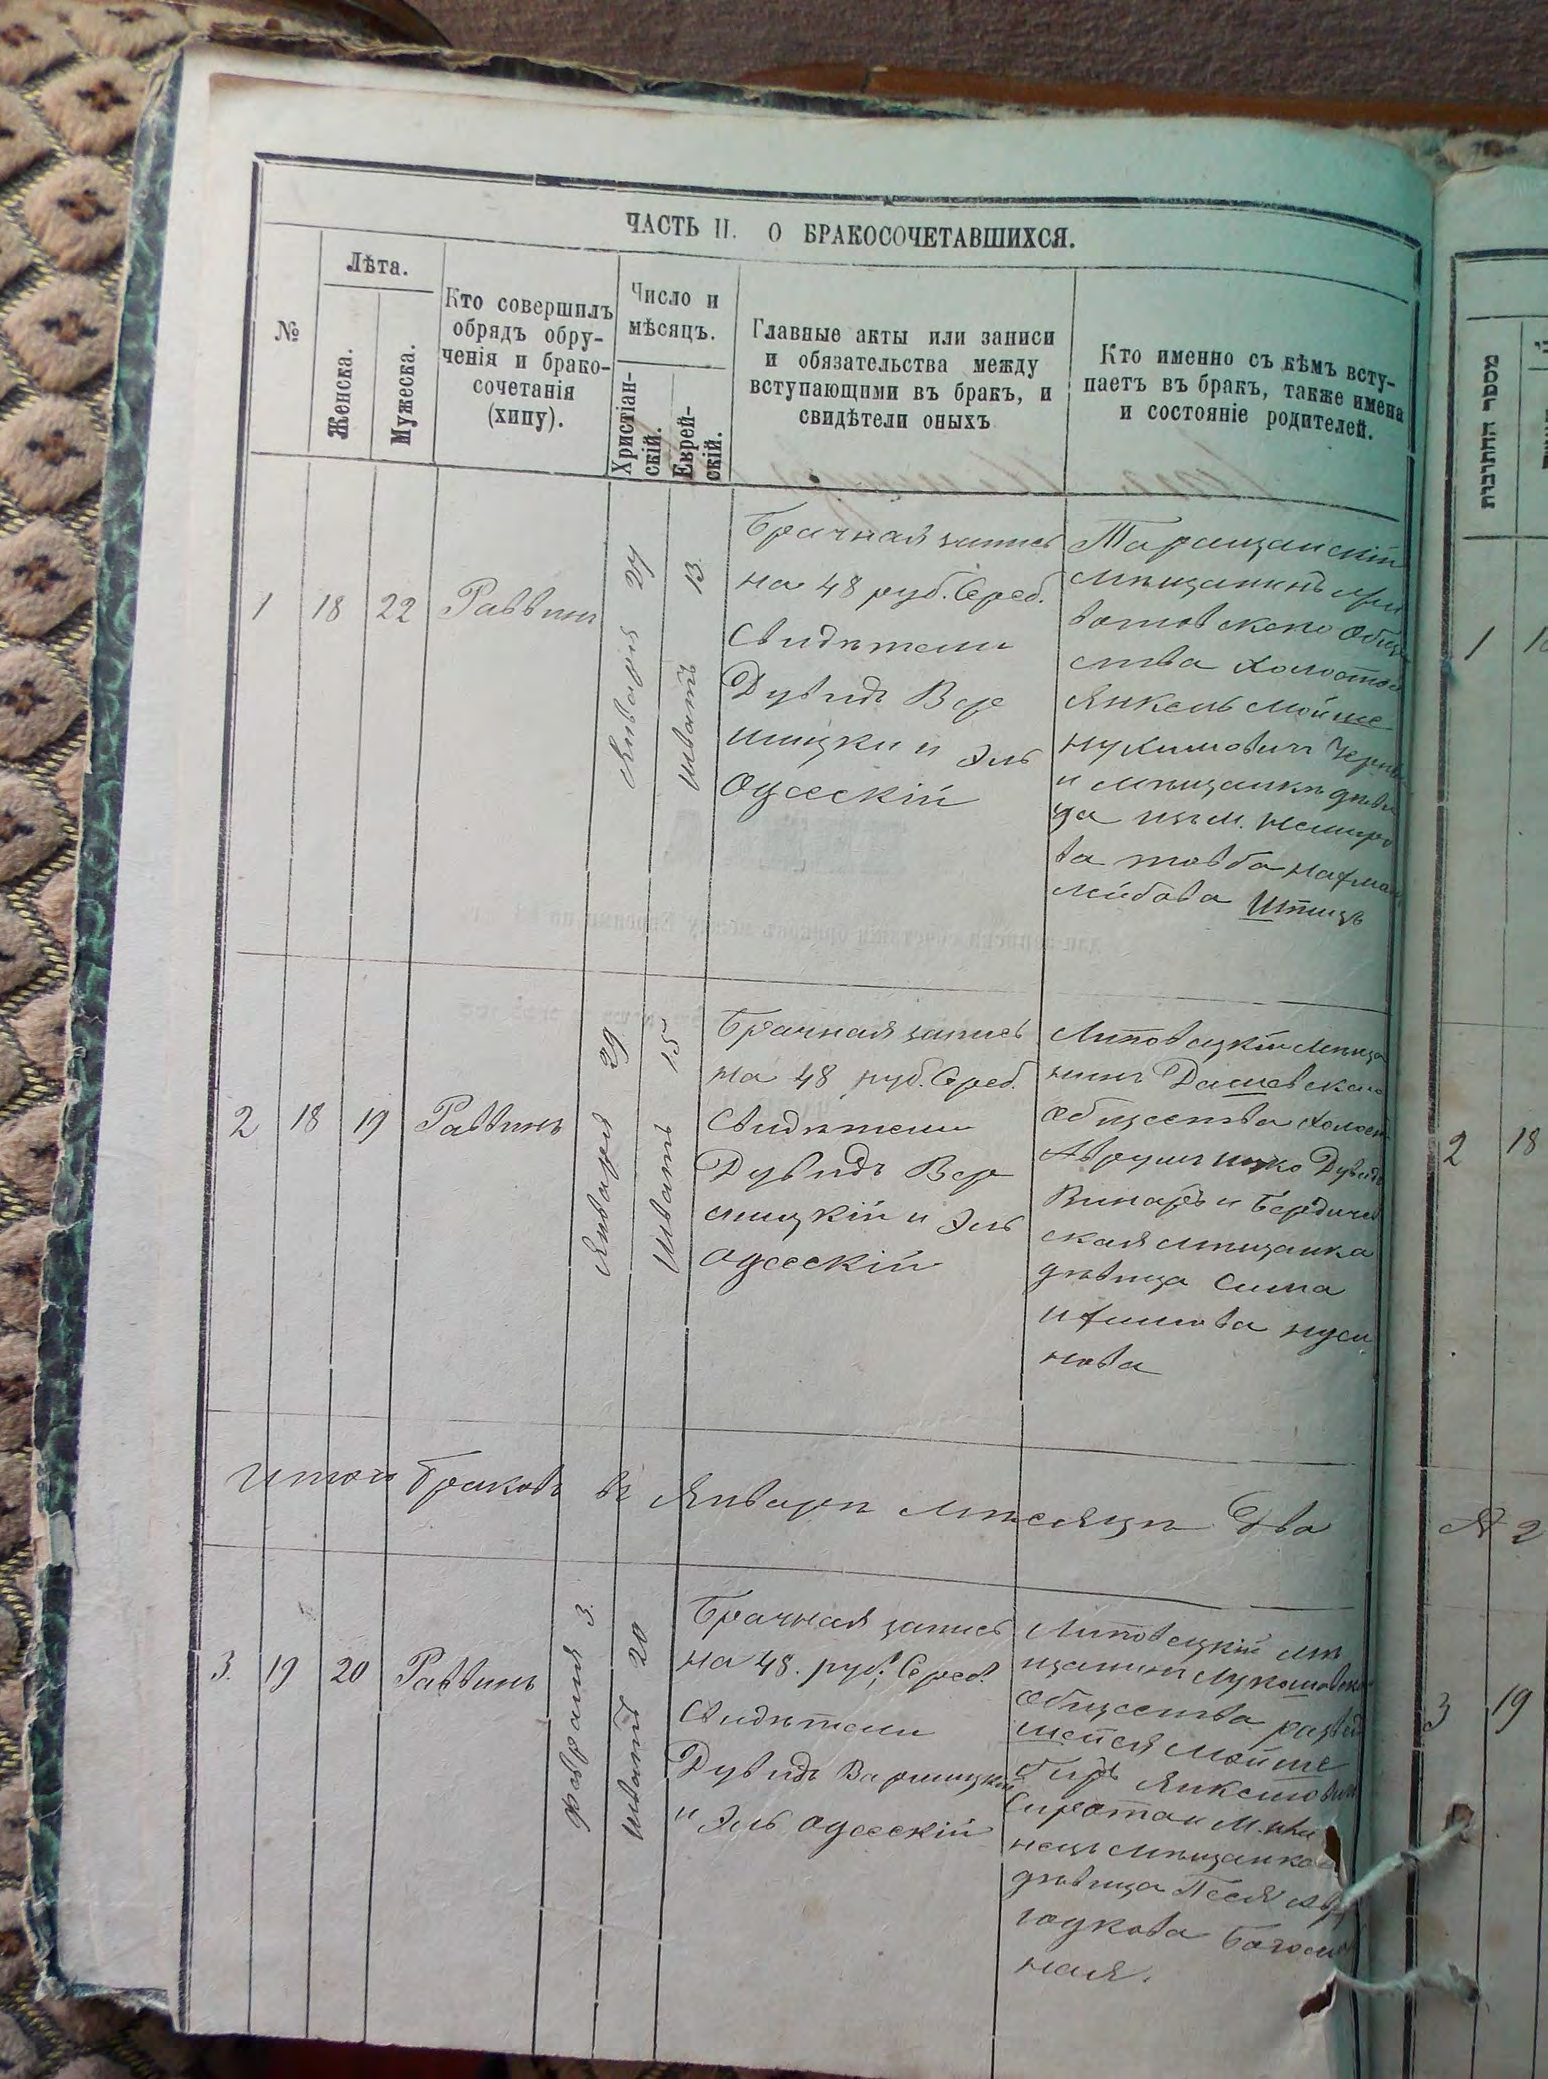 ЧАСТЬ II. О БРАКОСОЧЕТАВШИХСЯ.
№
Лѣта.
Женска.
Мужеска.
Кто совершилъ
обрядъ обру-
ченія и брако-
сочетанія
(хипу).
Число и
мѣсяцъ.
Христіан-
скій.
Еврей-
скій.
Главные акты или записи
и обязательства между
вступающими въ бракъ, и
свидѣтели оныхъ
Кто именно съ кѣмъ всту-
паетъ въ бракъ, также имена
и состояніе родителей.
1
18
22
Раввинъ
Января 27
Шватъ 13.
Брачная запись
на 48 руб. Сереб.
Свидѣтели
Дувидъ Вер
шицки и Эль
Одесскій
Таращанскій
мѣщанинъ
общ
ства холостой
Янкель Мойше
Нухимовичъ
и мѣщанка дѣви
ца изъ м. Немиро
ва Товба
Лейбова Шпицъ
2
18
19
Раввинъ
Января 29
Шватъ 15
Брачная запись
на 48 руб. Сереб.
Свидѣтели
Дувидъ Вер
шицкій и Эль
Одесскій
Липовецкій мѣща
нинъ Дашевскаго
общества холост
Аврумъ Ицко Дувидъ
Винаръ и Бердичев
ская мѣщанка
дѣвица Сима
Нуси
нова
Итого браковъ въ Январѣ мѣсяцѣ Два
3.
19
20
Раввинъ
Февраля 3.
Шватъ 20
Брачная запись
на 48. руб. Сереб.
Свидѣтели
Дувидъ Варшицкій
и Эль Одесскій
Липовецкій мѣ
щанинъ
общества развед
шейся Мойше
Беръ Янкелевъ
Сирота и м.
нецъ мѣщанка
дѣвица Песя
Богомол
ная.
מספר התתרבות
1
2
18
2
3
19